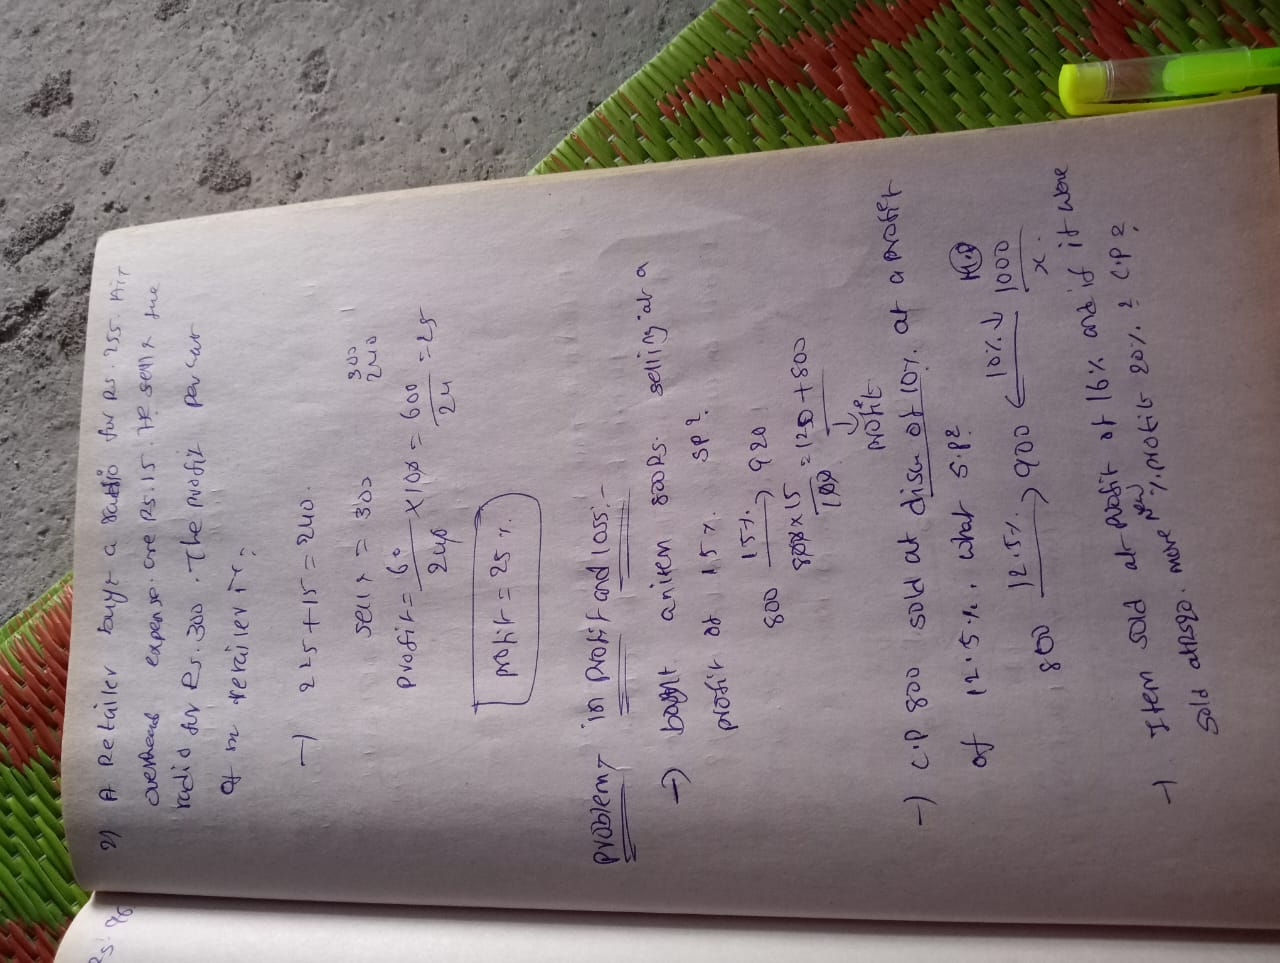 Rs. 90
2) A Retailer buys a radio for Rs. 255. His
overhead expense are Rs. 15. He sells the
radio for Rs. 300. The profit percent
of
retailer is?
→ 225 + 15 = 240.
sells = 300
300
240
profit = 60/240 × 100 = 600/24 = 25
profit = 25 %.
problems in profit and loss:-
→ bought an item 800 Rs. selling at a
profit of 15%. SP?
800 15%→ 920
800 × 15/100 = 120 + 800
↓
profit
→ C.P 800 sold at disc of 10%. at a profit
of 12.5%. what S.P?
M.P
800 12.5%→ 900 ← 10%↓ 1000
x.
→ Item sold at profit of 16% and if it were
new
sold at Rs 90. more %. profit 20%. ? C.P?